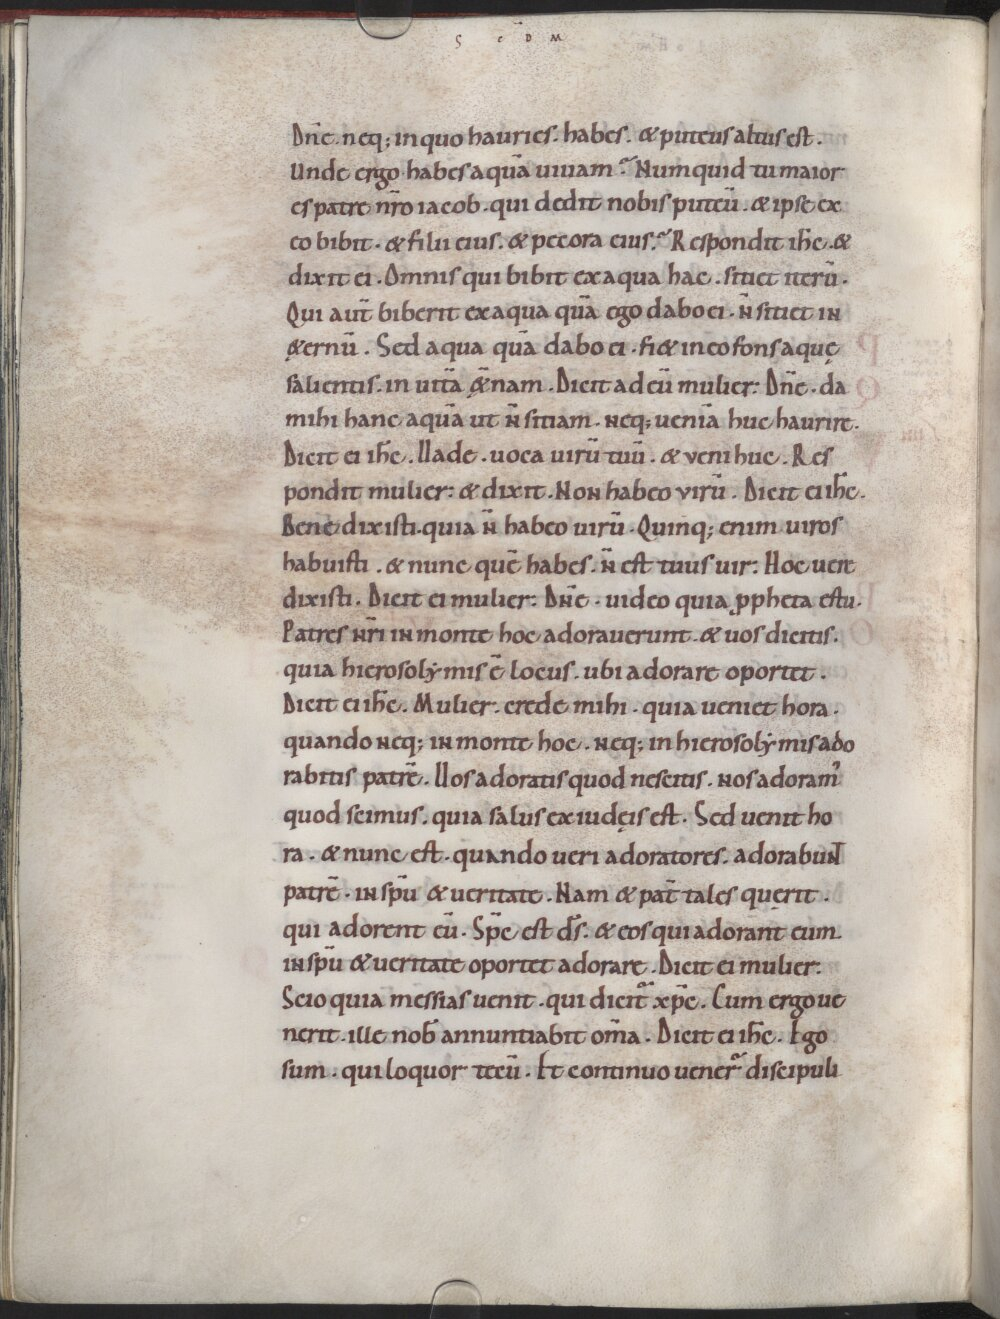 S E C D̄ M
Dn̄e. neq; in quo hauries. habes. & puteus altus est.
Unde ergo habes aquā uiuam? Numquid tu maior
es patre nr̄o iacob. qui dedit nobis puteū. & ipse ex
eo bibit. & filii eius. & pecora eius? Respondit ih̄c. &
dixit ei. Omnis qui bibit ex aqua hac. sitiet iterū.
Qui aut̄ biberit ex aqua quā ego dabo ei. n̄ sitiet in
ęternū. Sed aqua quā dabo ei. fi& in eo fons aquę
salientis. in uitā ęt̄nam. Dicit ad eū mulier: Dn̄e. da
mihi hanc aquā ut n̄ sitiam. neq; ueniā huc haurire.
Dicit ei ih̄c. Uade. uoca uirū tuū. & veni huc. Res
pondit mulier: & dixit. Non habeo virū. Dicit ei ih̄c.
Bene dixisti. quia n̄ habeo uirū. Quinq; enim uiros
habuisti. & nunc quē habes. n̄ est tuus uir: Hoc uere
dixisti. Dicit ei mulier: Dn̄e. uideo quia ꝓpheta es tu.
Patres nr̄i in monte hoc adorauerunt. & uos dicitis.
quia hierosolẏmis ē locus. ubi adorare oportet.
Dicit ei ih̄c. Mulier. crede mihi. quia ueniet hora.
quando neq; in monte hoc. neq; in hierosolẏmis ado
rabitis patrē. Uos adoratis quod nescitis. nos adoram᾽
quod scimus. quia salus ex iudęis est. Sed uenit ho
ra. & nunc est. quando ueri adoratores. adorabunt
patrē. in sp̄u & ueritate. Nam & pat̄ tales quęrit.
qui adorent eū. Sp̄c est d̄s. & eos qui adorant eum
in sp̄u & ueritate oportet adorare. Dicit ei mulier:
Scio quia messias uenit. qui dicit᷑ xp̄c. Cum ergo ue
nerit. ille nob̄ annuntiabit om̄a. Dicit ei ih̄c. Ego
sum. qui loquor tecū. Et continuo uener᷑ discipuli